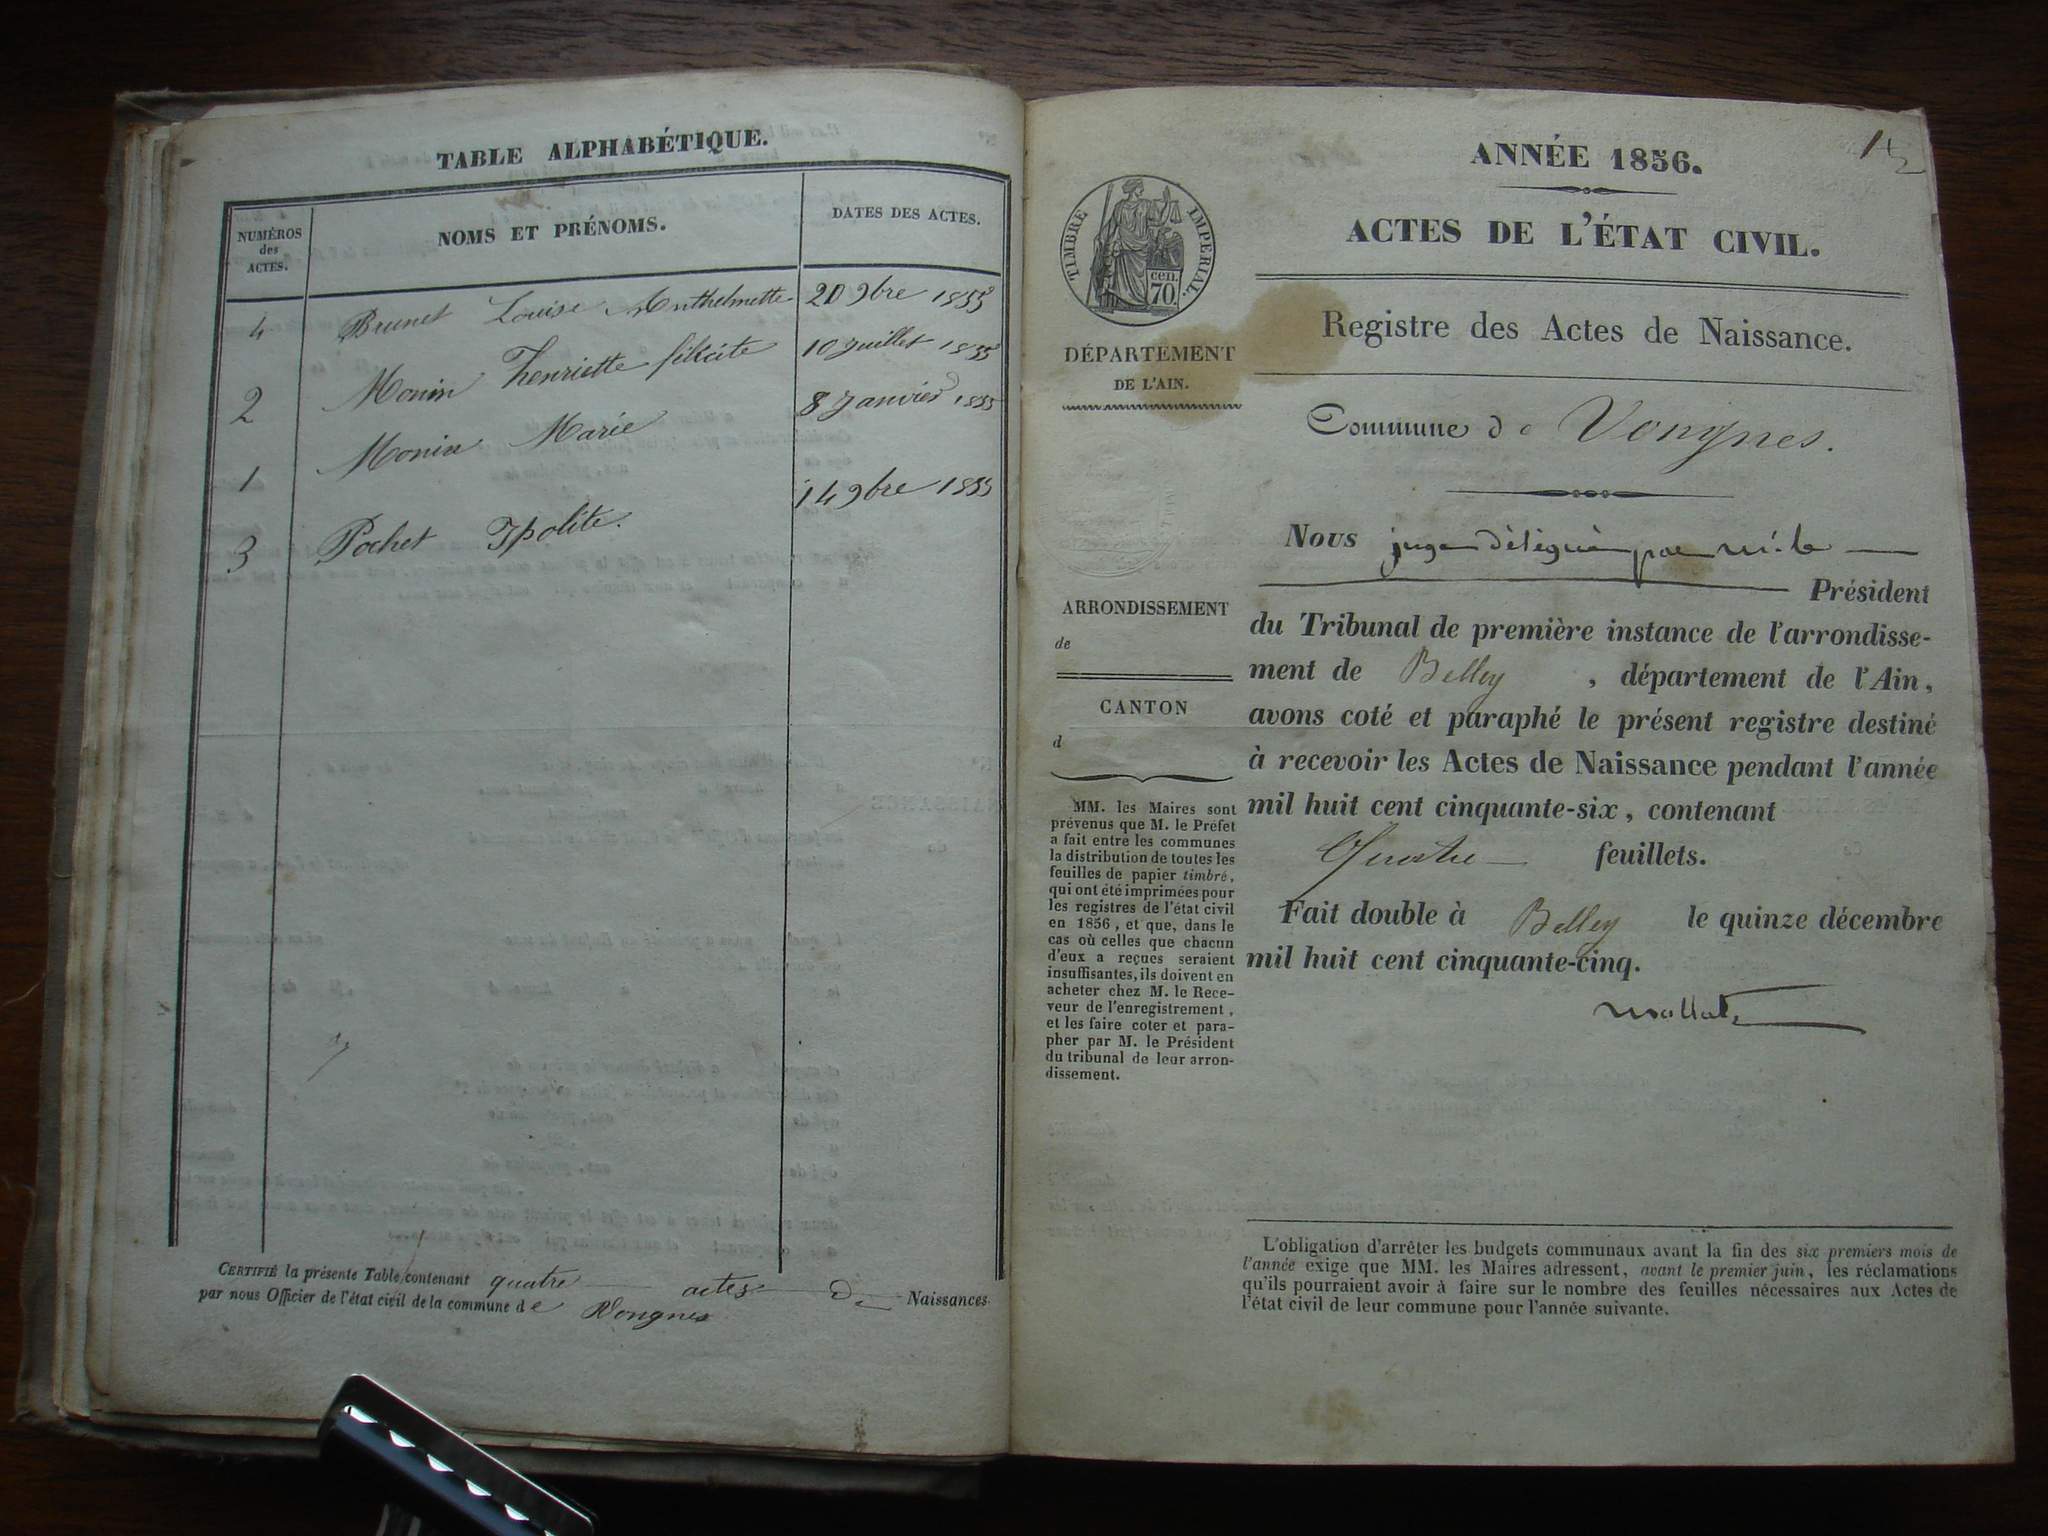 TABLE ALPHABÉTIQUE.
NUMÉROS des ACTES.
NOMS ET PRÉNOMS.
DATES DES ACTES.
4 Brunet Louise Anthelmette 20 9bre 1855
2 Monin henriette félicité 10 juillet 1855
1 Monin Marie 8 Janvier 1855
3 Pochet Ipolite. 14 9bre 1855
CERTIFIÉ la présente Table contenant quatre actes de Naissances
par nous Officier de l'état civil de la commune de Vongnes
ANNÉE 1856.
ACTES DE L'ÉTAT CIVIL.
TIMBRE IMPERIAL.
cen.
70.
Registre des Actes de Naissance.
DÉPARTEMENT
DE L'AIN.
Commune de Vongnes.
Nous juge délégué par Mr. le
Président
du Tribunal de première instance de l'arrondisse-
ment de Belley , département de l'Ain,
avons coté et paraphé le présent registre destiné
à recevoir les Actes de Naissance pendant l'année
mil huit cent cinquante-six, contenant
Quatre feuillets.
Fait double à Belley le quinze décembre
mil huit cent cinquante-cinq.
ARRONDISSEMENT
de
CANTON
d
MM. les Maires sont
prévenus que M. le Préfet
a fait entre les communes
la distribution de toutes les
feuilles de papier timbré,
qui ont été imprimées pour
les registres de l'état civil
en 1856, et que, dans le
cas où celles que chacun
d'eux a reçues seraient
insuffisantes, ils doivent en
acheter chez M. le Rece-
veur de l'enregistrement,
et les faire coter et para-
pher par M. le Président
du tribunal de leur arron-
dissement.
L'obligation d'arrêter les budgets communaux avant la fin des six premiers mois de
l'année exige que MM. les Maires adressent, avant le premier juin, les réclamations
qu'ils pourraient avoir à faire sur le nombre des feuilles nécessaires aux Actes de
l'état civil de leur commune pour l'année suivante.